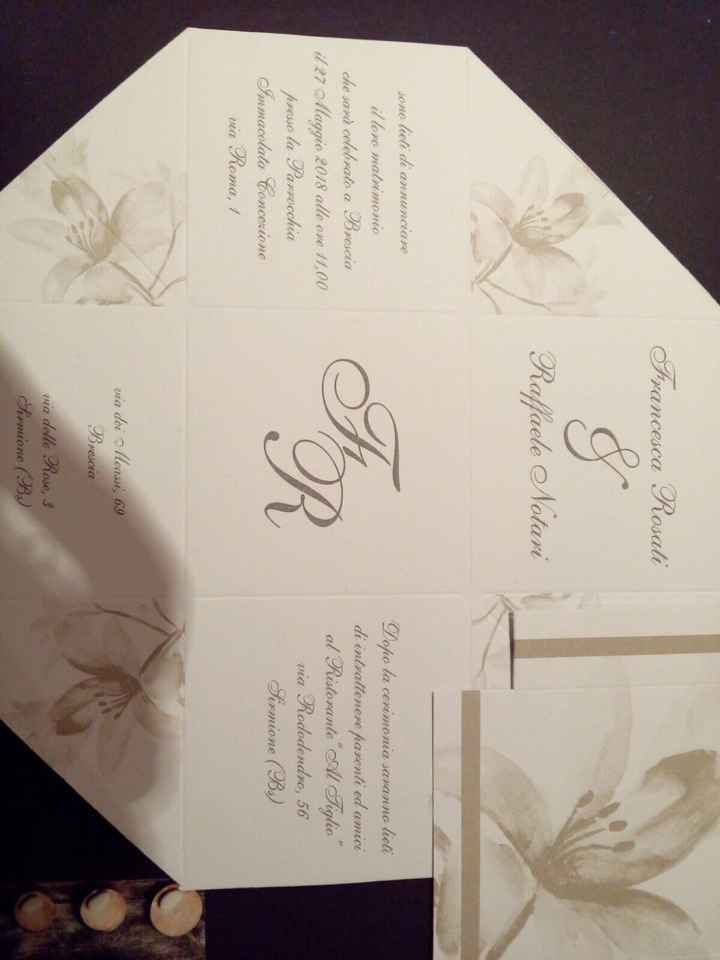 Francesca Rosati
&
Raffaele Notari
sono lieti di annunciare
il loro matrimonio
che sarà celebrato a Brescia
il 27 Maggio 2018 alle ore 11,00
presso la Parrocchia
Immacolata Concezione
via Roma, 1
FR
Dopo la cerimonia saranno lieti
di intrattenere parenti ed amici
al Ristorante "Al Tiglio"
via Rododendro, 56
Sirmione (Bs)
via dei Mensi, 69
Brescia
via delle Rose, 3
Sirmione (Bs)